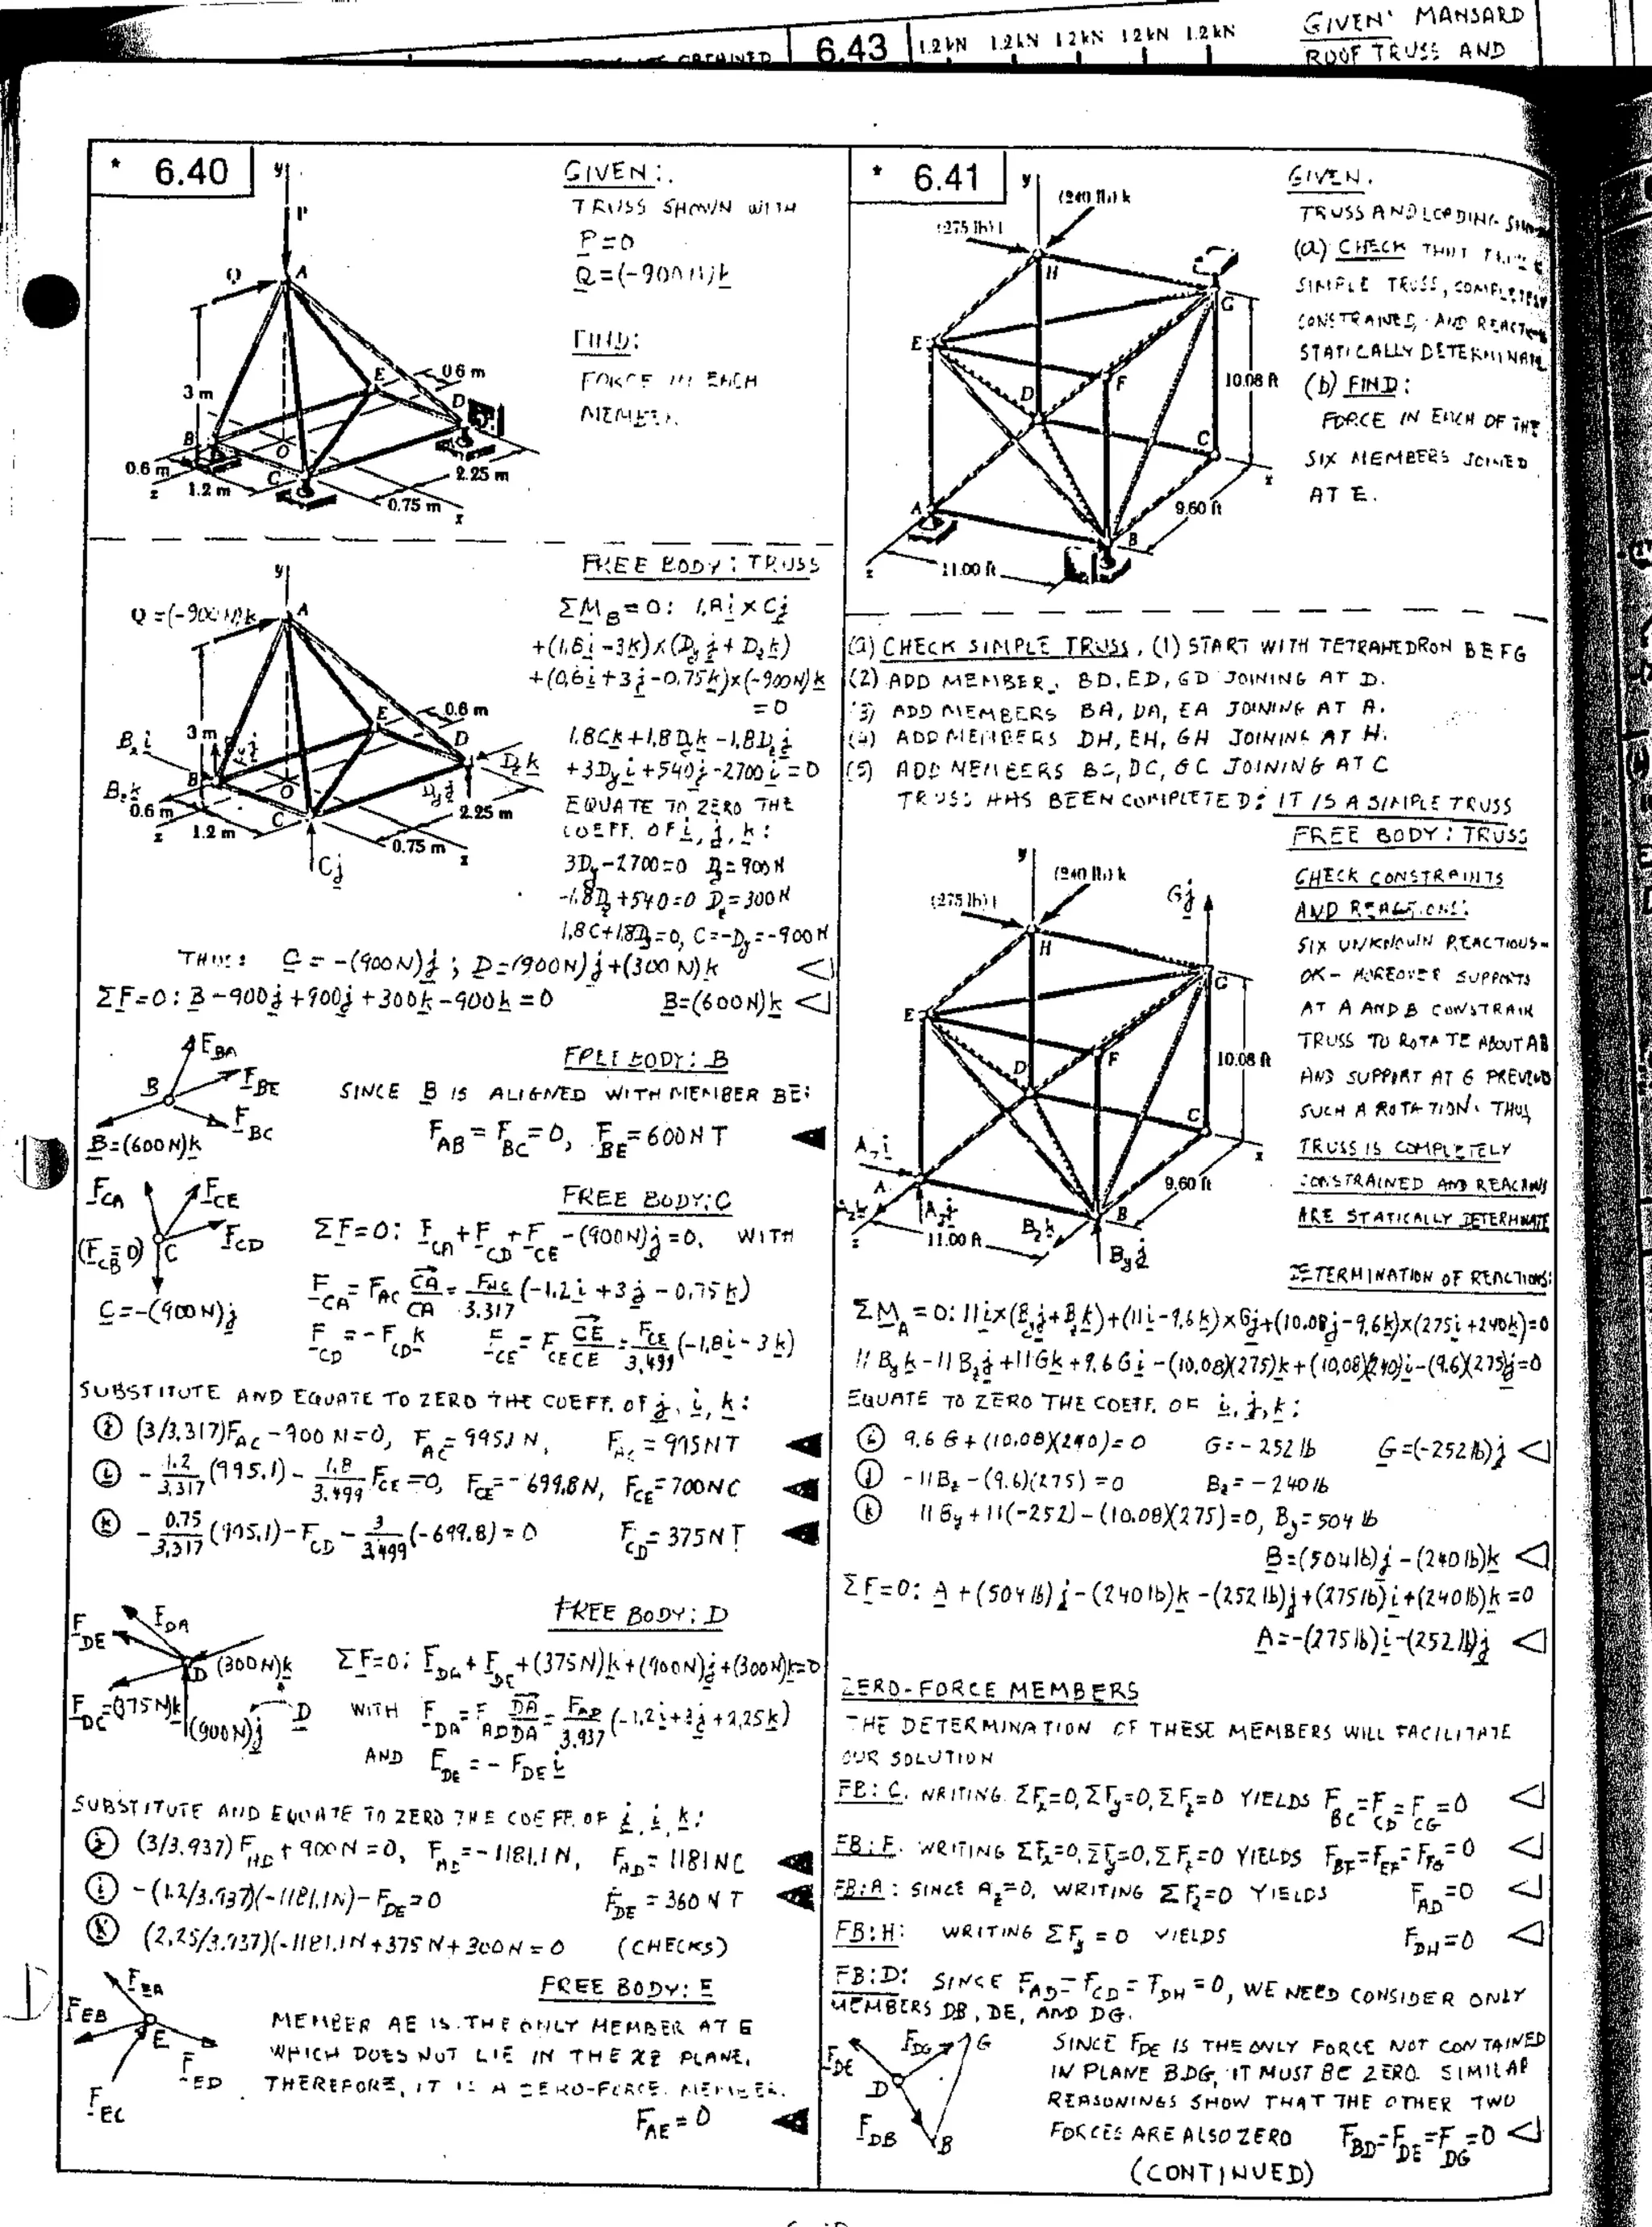 6.43
1.2 kN 1.2 kN 1.2 kN 1.2 kN 1.2 kN
GIVEN: MANSARD
ROOF TRUSS AND
* 6.40
y
P
Q
A
3 m
E
0.6 m
D
B
O
0.6 m
z
1.2 m
C
2.25 m
0.75 m
x
GIVEN:
TRUSS SHOWN WITH
P = 0
Q = (-900 N) k
FIND:
FORCE IN EACH
MEMBER.
FREE BODY: TRUSS
y
Q = (-900 N) k
A
3 m
E
0.6 m
D
B
O
0.6 m
z
1.2 m
C
2.25 m
0.75 m
x
Cj
ΣM_B = 0: 1.8i × Cj
+(1.8i - 3k)×(D_y j + D_z k)
+(0.6i + 3j - 0.75k)×(-900N)k
= 0
1.8Ck + 1.8D_y k - 1.8D_z j
+3D_y i + 540j - 2700i = 0
EQUATE TO ZERO THE
COEFF. OF i, j, k:
3D_y - 2700 = 0 D_y = 900 N
-1.8D_z + 540 = 0 D_z = 300 N
1.8C + 1.8D_y = 0, C = -D_y = -900 N
THUS: C = -(900N)j ; D = (900N)j + (300 N)k
ΣF = 0: B - 900j + 900j + 300k - 900k = 0 B = (600N)k
FREE BODY: B
F_BA
F_BE
B
F_BC
B = (600N)k
SINCE B IS ALIGNED WITH MEMBER BE:
F_AB = F_BC = 0, F_BE = 600N T
FREE BODY: C
F_CA
F_CE
F_CD
(F_CB = 0)
C
C = -(900N)j
ΣF = 0: F_CA + F_CD + F_CE - (900N)j = 0, WITH
F_CA = F_AC CA/CA = F_AC/3.317 (-1.2i + 3j - 0.75k)
F_CD = -F_CD k F_CE = F_CE CE/CE = F_CE/3.499 (-1.8i - 3k)
SUBSTITUTE AND EQUATE TO ZERO THE COEFF. OF j, i, k:
(j) (3/3.317)F_AC - 900 N = 0, F_AC = 995.1 N, F_AC = 995N T
(i) -1.2/3.317 (995.1) - 1.8/3.499 F_CE = 0, F_CE = -699.8N, F_CE = 700N C
(k) -0.75/3.317 (995.1) - F_CD - 3/3.499 (-699.8) = 0 F_CD = 375N T
FREE BODY: D
F_DA
F_DE
D (300N)k
F_DC = (375N)k
(900N)j
D
ΣF = 0: F_DA + F_DE + (375N)k + (900N)j + (300N)k = 0
WITH F_DA = F_AD DA/DA = F_AD/3.937 (-1.2i + 3j + 2.25k)
AND F_DE = -F_DE i
SUBSTITUTE AND EQUATE TO ZERO THE COEFF. OF j, i, k:
(j) (3/3.937) F_AD + 900N = 0, F_AD = -1181.1N, F_AD = 1181N C
(i) -(1.2/3.937)(-1181.1N) - F_DE = 0 F_DE = 360 N T
(k) (2.25/3.937)(-1181.1N + 375N + 300N = 0 (CHECKS)
FREE BODY: E
F_EA
F_EB
E
F_ED
F_EC
MEMBER AE IS THE ONLY MEMBER AT E
WHICH DOES NOT LIE IN THE XZ PLANE.
THEREFORE, IT IS A ZERO-FORCE MEMBER.
F_AE = 0
* 6.41
y
(240 lb) k
(275 lb) i
H
G
E
F
D
10.08 ft
C
A
B
9.60 ft
11.00 ft
z
x
GIVEN.
TRUSS AND LOADING
(a) CHECK THAT
SIMPLE TRUSS, COMPLETELY
CONSTRAINED, AND REACTIONS
STATICALLY DETERMINATE
(b) FIND:
FORCE IN EACH OF THE
SIX MEMBERS JOINED
AT E.
(a) CHECK SIMPLE TRUSS. (1) START WITH TETRAHEDRON BEFG
(2) ADD MEMBERS BD, ED, GD JOINING AT D.
(3) ADD MEMBERS BA, DA, EA JOINING AT A.
(4) ADD MEMBERS DH, EH, GH JOINING AT H.
(5) ADD MEMBERS BC, DC, GC JOINING AT C
TRUSS HAS BEEN COMPLETED: IT IS A SIMPLE TRUSS
FREE BODY: TRUSS
y
(240 lb) k
(275 lb) i
Gj
H
G
E
F
D
10.08 ft
C
A_x i
A
A_z k
A_y j
B_z k
B
B_y j
9.60 ft
11.00 ft
z
x
CHECK CONSTRAINTS
AND REACTIONS:
SIX UNKNOWN REACTIONS-
OK - MOREOVER SUPPORTS
AT A AND B CONSTRAIN
TRUSS TO ROTATE ABOUT AB
AND SUPPORT AT G PREVENTS
SUCH A ROTATION. THUS,
TRUSS IS COMPLETELY
CONSTRAINED AND REACTIONS
ARE STATICALLY DETERMINATE
DETERMINATION OF REACTIONS:
ΣM_A = 0: 11i×(B_y j + B_z k) + (11i - 9.6k)×Gj + (10.08j - 9.6k)×(275i + 240k) = 0
11 B_y k - 11 B_z j + 11Gk + 9.6Gi - (10.08)(275)k + (10.08)(240)i - (9.6)(275)j = 0
EQUATE TO ZERO THE COEFF. OF i, j, k:
(i) 9.6 G + (10.08)(240) = 0 G = -252 lb G = (-252 lb)j
(j) -11B_z - (9.6)(275) = 0 B_z = -240 lb
(k) 11B_y + 11(-252) - (10.08)(275) = 0, B_y = 504 lb
B = (504 lb)j - (240 lb)k
ΣF = 0: A + (504 lb)j - (240 lb)k - (252 lb)j + (275 lb)i + (240 lb)k = 0
A = -(275 lb)i - (252 lb)j
ZERO-FORCE MEMBERS
THE DETERMINATION OF THESE MEMBERS WILL FACILITATE
OUR SOLUTION
FB: C. WRITING ΣF_x = 0, ΣF_y = 0, ΣF_z = 0 YIELDS F_BC = F_CD = F_CG = 0
FB: F. WRITING ΣF_x = 0, ΣF_y = 0, ΣF_z = 0 YIELDS F_BF = F_EF = F_FG = 0
FB: A: SINCE A_z = 0, WRITING ΣF_z = 0 YIELDS F_AD = 0
FB: H: WRITING ΣF_y = 0 YIELDS F_DH = 0
FB: D: SINCE F_AD = F_CD = F_DH = 0, WE NEED CONSIDER ONLY
MEMBERS DB, DE, AND DG.
F_DE
F_DG
G
D
F_DB
B
SINCE F_DE IS THE ONLY FORCE NOT CONTAINED
IN PLANE BDG, IT MUST BE ZERO. SIMILAR
REASONINGS SHOW THAT THE OTHER TWO
FORCES ARE ALSO ZERO F_BD = F_DE = F_DG = 0
(CONTINUED)